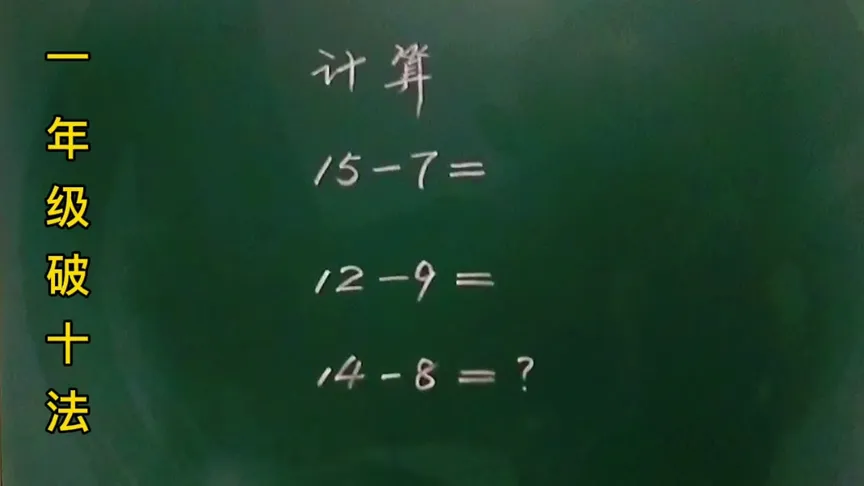 一年级破十法
计算
15-7=
12-9=
14-8=?